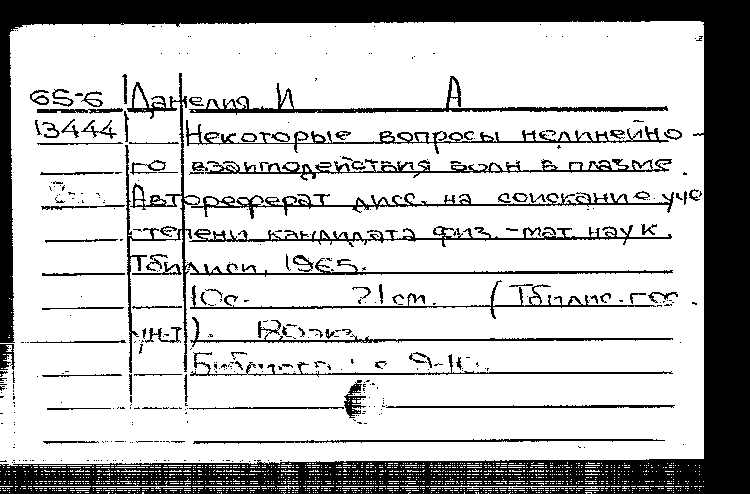 65-6 Данелия И А
13444 Некоторые вопросы нелинейно-
го взаимодействия волн в плазме.
Автореферат дисс. на соискание уче
степени кандидата физ.-мат. наук.
Тбилиси, 1965.
10с. 21см. (Тбилис. гос.
ун-т). 180экз.
Библиогр.: с 9-10.